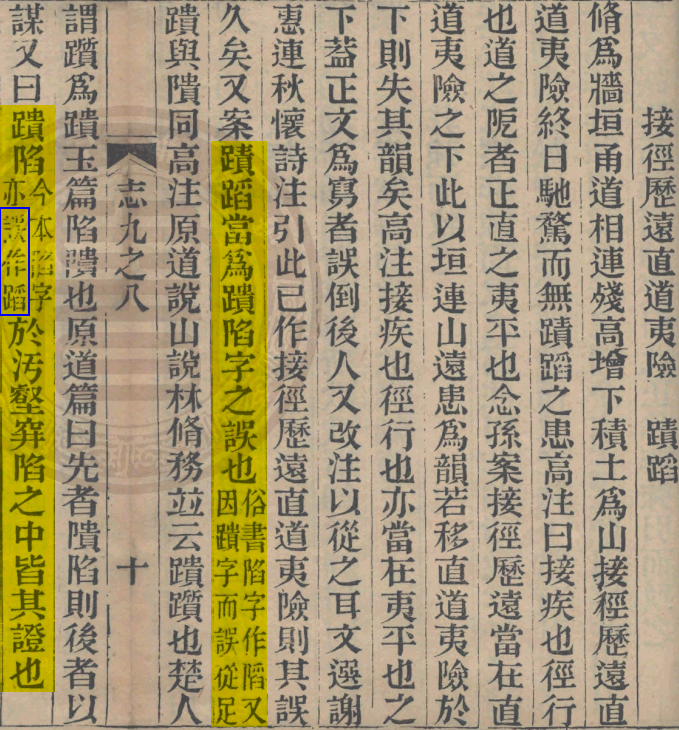 接徑歷遠直道夷險　蹟蹈
脩爲牆垣甬道相連殘高增下積土爲山接徑歷遠直
道夷險終日馳騖而無蹟蹈之患高注曰接疾也徑行
也道之阨者正直之夷平也念孫案接徑歷遠當在直
道夷險之下此以垣連山遠患爲韻若移直道夷險於
下則失其韻矣高注接疾也徑行也亦當在夷平也之
下葢正文爲寫者誤倒後人又改注以從之耳文選謝
惠連秋懷詩注引此已作接徑歷遠直道夷險則其誤
久矣又案蹟蹈當爲蹪陷字之誤也俗書陷字作䧟又因蹟字而誤從足
蹪與隤同高注原道說山說林脩務竝云蹪躓也楚人
志九之八　十
謂躓爲蹪玉篇陷隤也原道篇曰先者隤陷則後者以
謀又曰蹪陷今本陷字亦誤作蹈於汚壑穽陷之中皆其證也